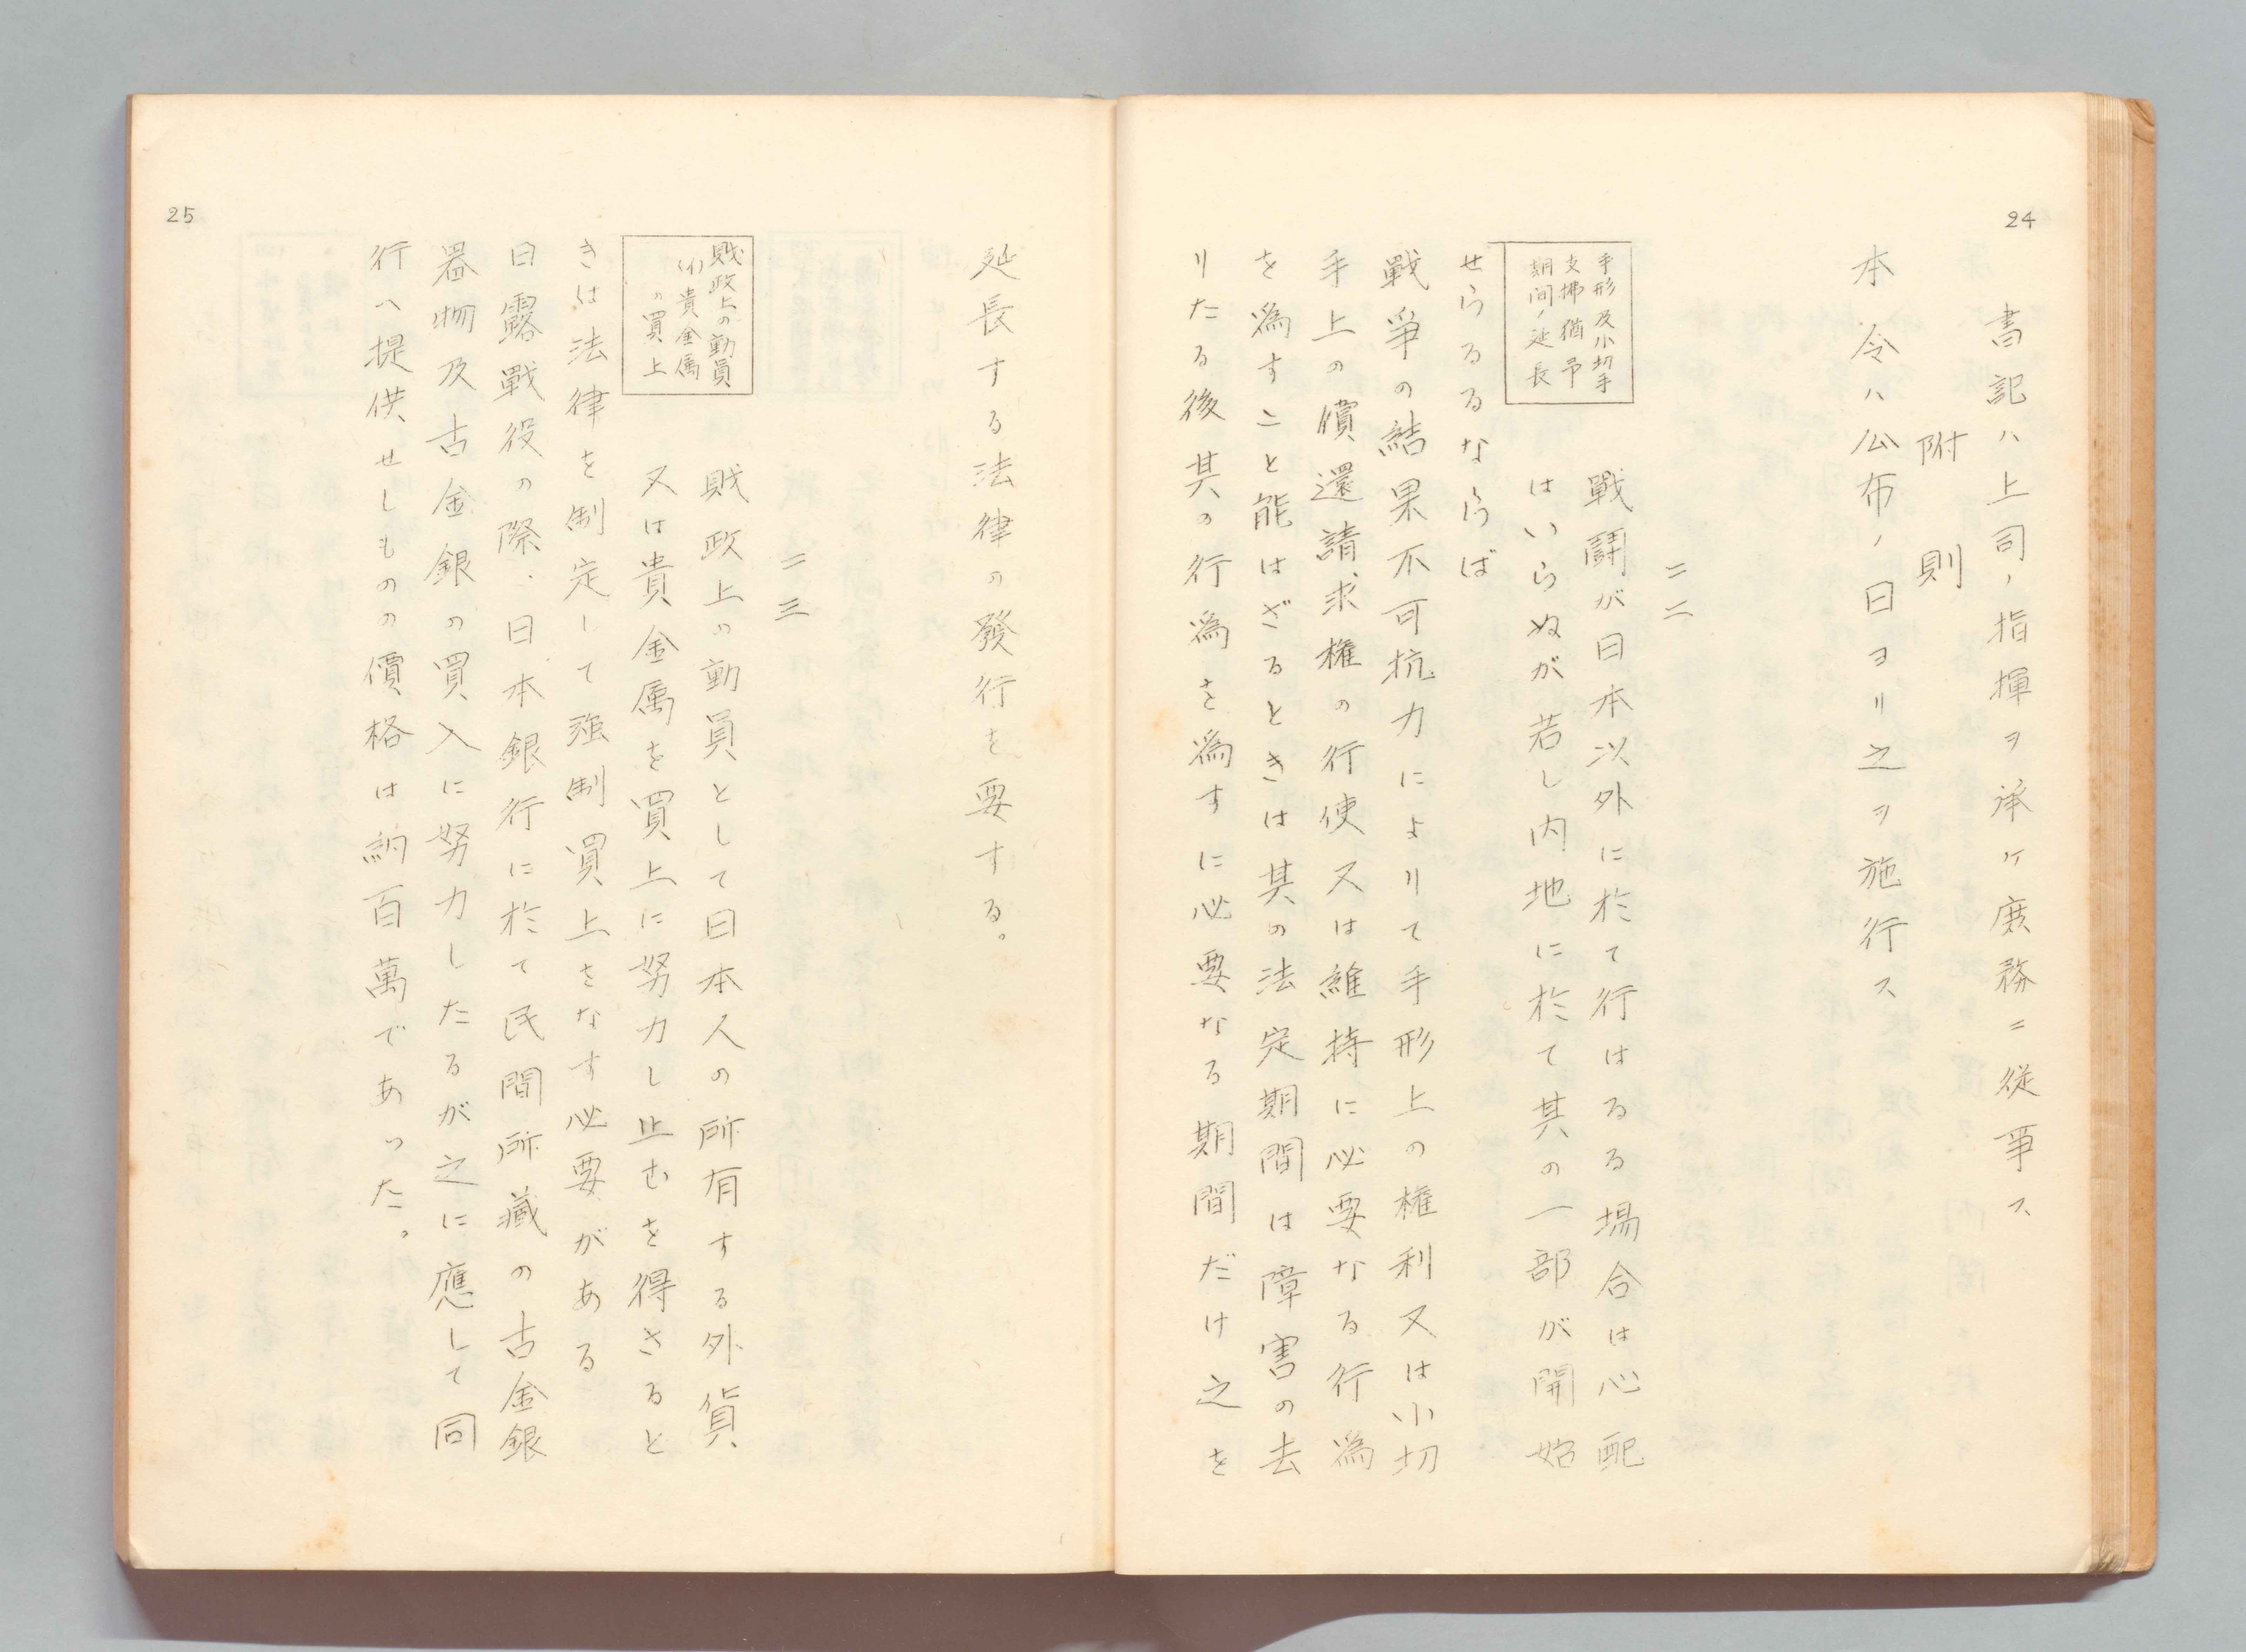 24
書記ハ上司ノ指揮ヲ承ケ庶務ニ從事ス
附則
本令ハ公布ノ日ヨリ之ヲ施行ス
二二
手形及小切手
支拂猶予
期間ノ延長
戰鬪が日本以外に於て行はるる場合は心配
はいらぬが若し内地に於て其の一部が開始
せらるるならば
戰爭の結果不可抗力によりて手形上の權利又は小切
手上の償還請求權の行使又は維持に必要なる行爲
を爲すこと能はざるときは其の法定期間は障害の去
りたる後其の行爲を爲すに必要なる期間だけ之を
25
延長する法律の發行を要する。
二三
財政上の動員
(イ)貴金属
の買上
財政上の動員として日本人の所有する外貨
又は貴金属を買上に努力し止むを得さると
きは法律を制定して強制買上をなす必要がある
日露戰役の際、日本銀行に於て民間所藏の古金銀
器物及古金銀の買入に努力したるが之に應して同
行へ提供せしものの價格は約百萬であった。